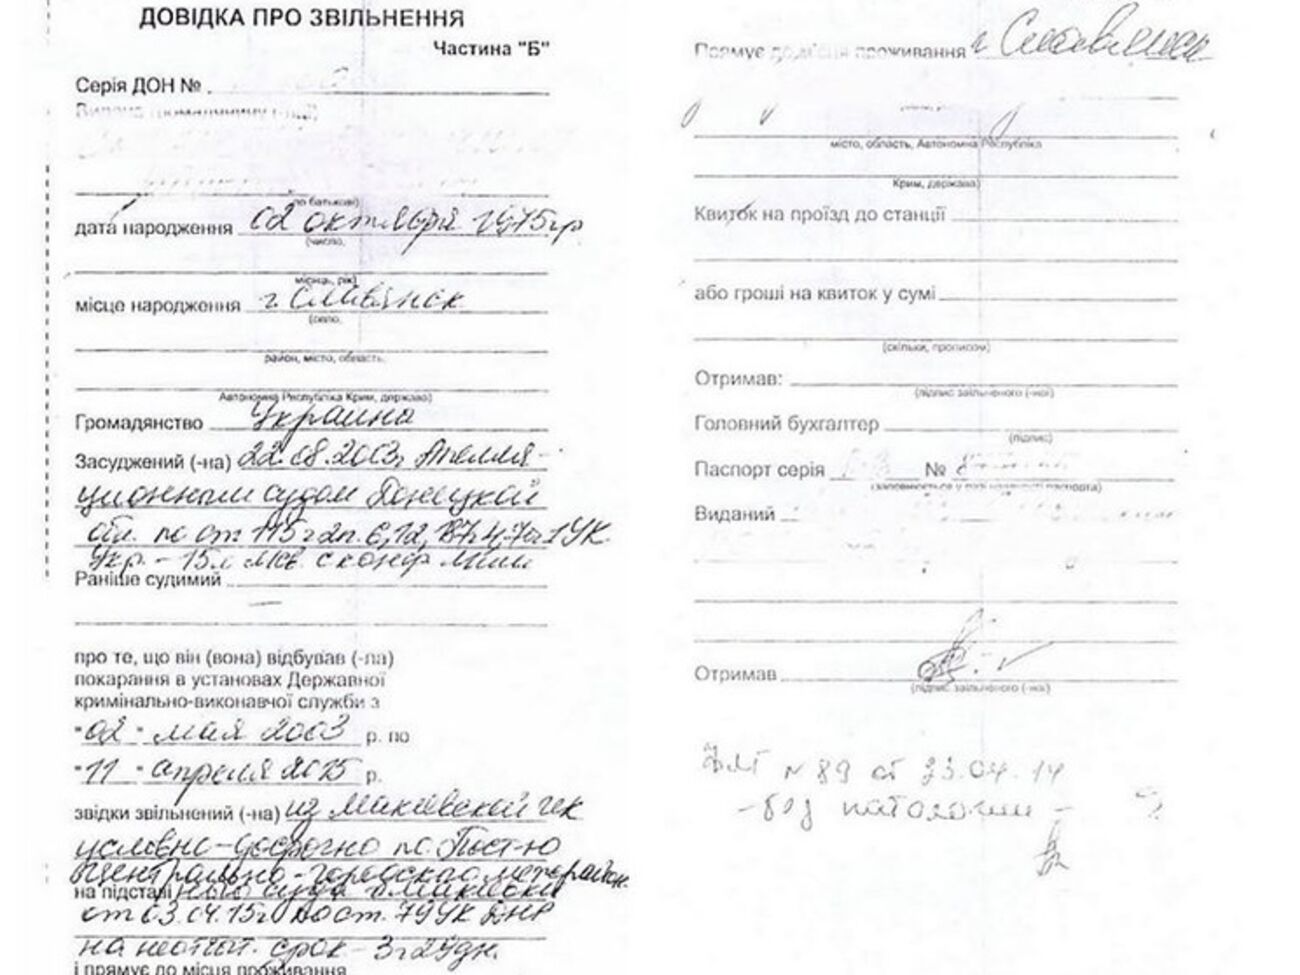 ДОВІДКА ПРО ЗВІЛЬНЕННЯ
Частина "Б"
Серія ДОН №
дата народження 02 октября 1975 гр
(число,
місяць, рік)
місце народження г. Славянск
(село,
район, місто, область,
Автономна Республіка Крим, держава)
Громадянство Украина
Засуджений (-на) 22.08.2003г Апелля-
ционным судом Донецкой
обл. по ст 115 ч2п. 6,12, 187ч4, 70ч1 УК
Укр. - 15л с конф
Раніше судимий
про те, що він (вона) відбував (-ла)
покарання в установах Державної
кримінально-виконавчої служби з
"02" мая 2003 р. по
"11" апреля 2015 р.
звідки звільнений (-на) из Макеевской
условно-досрочно по Пост-ю
Центрально-городского межрайон
на підставі ного суда г. Макеевки
от 03.04.15г по ст. 79 УК ДНР
на неотб. срок - 3г 29дн.
і прямує до місця проживання
Прямує до місця проживання г Славянск
місто, область, Автономна Республіка
Крим, держава)
Квиток на проїзд до станції
або гроші на квиток у сумі
(скільки, прописом)
Отримав:
(підпис звільненого (-ної)
Головний бухгалтер
(підпис)
Паспорт серія №
(заповнюється у разі наявності паспорта)
Виданий
Отримав
(підпис звільненого (-ної)
№ 89 от 23.04.14
- без патологии -